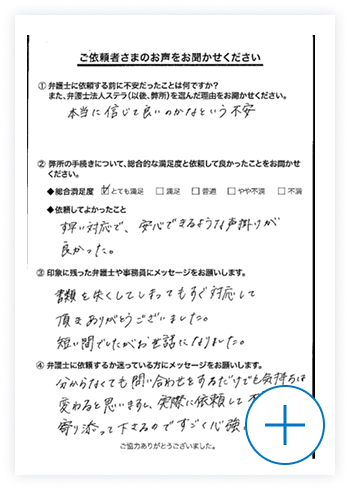 ご依頼者さまのお声をお聞かせください
① 弁護士に依頼する前に不安だったことは何ですか?
また、弁護士法人ステラ(以後、弊所)を選んだ理由をお聞かせください。
本当に信じて良いのかなという不安
② 弊所の手続きについて、総合的な満足度と依頼して良かったことをお聞かせ
ください。
◆総合満足度 ☑とても満足 □満足 □普通 □やや不満 □不満
◆依頼してよかったこと
す早い対応で、安心できるような声掛けが
良かった。
③ 印象に残った弁護士や事務員にメッセージをお願いします。
書類を失くしてしまってもすぐ対応して
頂きありがとうございました。
短い間でしたがお世話になりました。
④ 弁護士に依頼するか迷っている方にメッセージをお願いします。
分からなくても問い合わせをするだけでも気持ちは
変わると思いますし、実際に依頼して
寄り添って下さるのですごく心強
ご協力ありがとうございました。